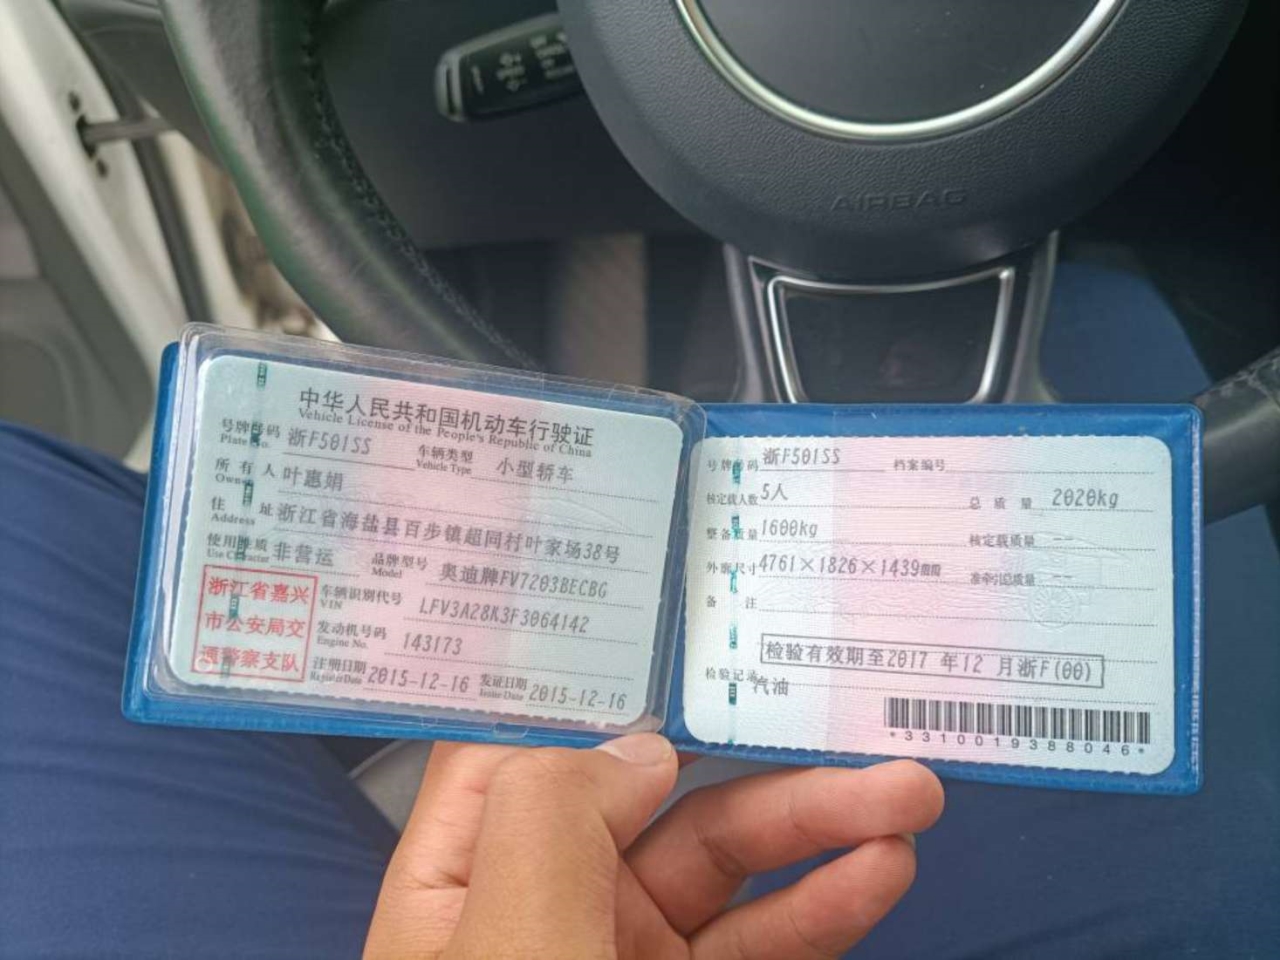 AIRBAG
中华人民共和国机动车行驶证
Vehicle License of the People's Republic of China
号牌号码 Plate No. 浙F501SS 车辆类型 Vehicle Type 小型轿车
所有人 Owner 叶惠娟
住址 Address 浙江省海盐县百步镇超同村叶家场38号
使用性质 Use Character 非营运 品牌型号 Model 奥迪牌FV7203BECBG
浙江省嘉兴
市公安局交
通警察支队
车辆识别代号 VIN LFV3A28K3F3064142
发动机号码 Engine No. 143173
注册日期 Register Date 2015-12-16 发证日期 Issue Date 2015-12-16
号牌号码 浙F501SS 档案编号
核定载人数 5人 总质量 2020kg
整备质量 1600kg 核定载质量 --
外廓尺寸 4761×1826×1439mm 准牵引总质量 --
备注
检验有效期至2017年12月浙F(00)
检验记录 汽油
*3310019388046*